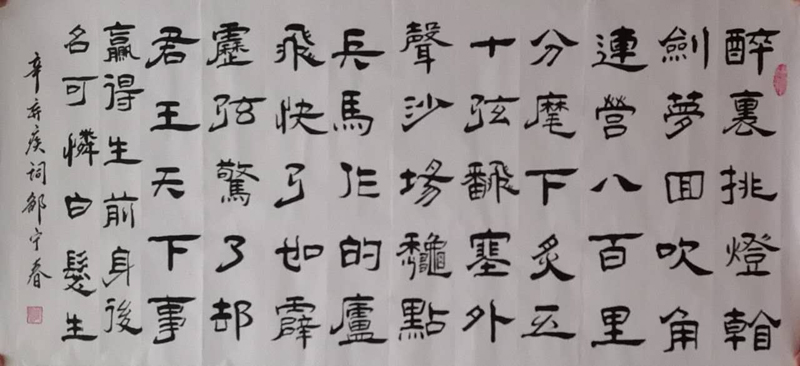 醉裏挑燈看
劍夢回吹角
連營八百里
分麾下炙五
十弦翻塞外
聲沙場龝點
兵馬作的廬
飛快弓如霹
靂弦驚了却
君王天下事
贏得生前身後
名可憐白髮生
辛弃疾詞鄒宁春